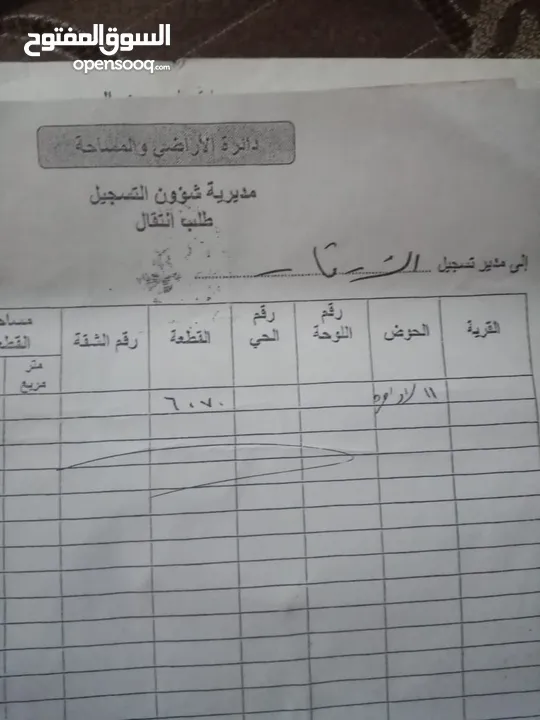 السوق المفتوح
opensooq.com
دائرة الأراضي والمساحة
مديرية شؤون التسجيل
طلب انتقال
إلى مدير تسجيل الزرقاء
القرية الحوض رقم اللوحة رقم الحي القطعة رقم الشقة
متر مربع
١١ ٦٠٧٠